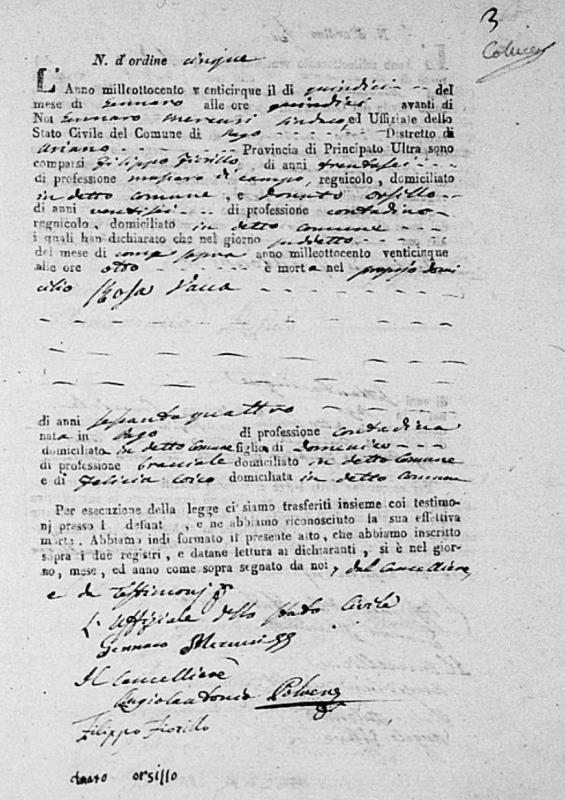 3
N. d'ordine cinque
L'Anno milleottocento venticinque il dì quindici del
mese di Gennaro alle ore quindici avanti di
Noi Gennaro Mercusi Sindaco, ed Uffiziale dello
Stato Civile del Comune di Pago Distretto di
Ariano Provincia di Principato Ultra sono
comparsi Filippo Fiorillo, di anni trentasei
di professione massaro di campo, regnicolo, domiciliato
in detto comune, e Donato Orsillo
di anni ventisei di professione contadino
regnicolo, domiciliato in detto comune
i quali han dichiarato che nel giorno suddetto
del mese di come sopra anno milleottocento venticinque
alle ore otto è morta nel proprio domi
cilio Rosa Vacca
di anni sessantaquattro
nata in Pago di professione contadina
domiciliata in detto Comune figlia di Domenico
di professione bracciale domiciliato in detto Comune
e di Felicia domiciliata in detto Comune
Per esecuzione della legge ci siamo trasferiti insieme coi testimo-
nj presso l defunt , e ne abbiamo riconosciuto la sua effettiva
morte. Abbiamo indi formato il presente atto, che abbiamo inscritto
sopra i due registri, e datane lettura ai dichiaranti, si è nel gior-
no, mese, ed anno come sopra segnato da noi, dal Cancelliere,
e da Testimonj
L'Uffiziale dello Stato Civile
Gennaro Mercusi
Il Cancelliere
Angiolantonio
Filippo Fiorillo
orsillo